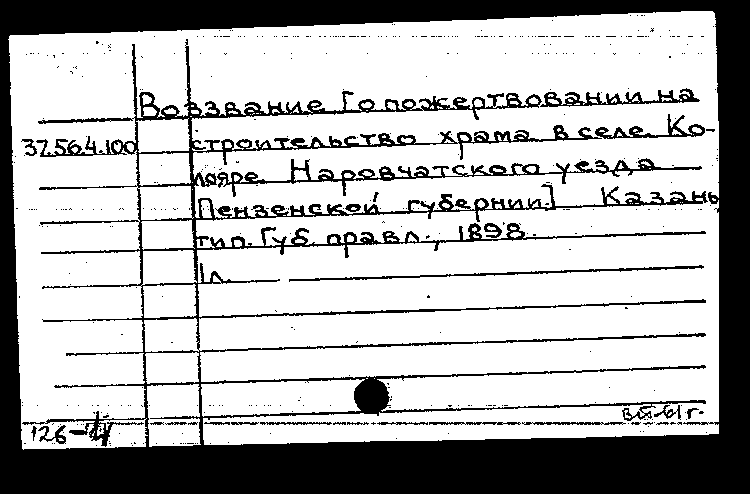 Воззвание [о пожертвовании на
37.56.4.100 строительство храма в селе Ко-
лояре Наровчатского уезда
Пензенской губернии.] Казань
тип. Губ. правл., 1898.
1л.
126-